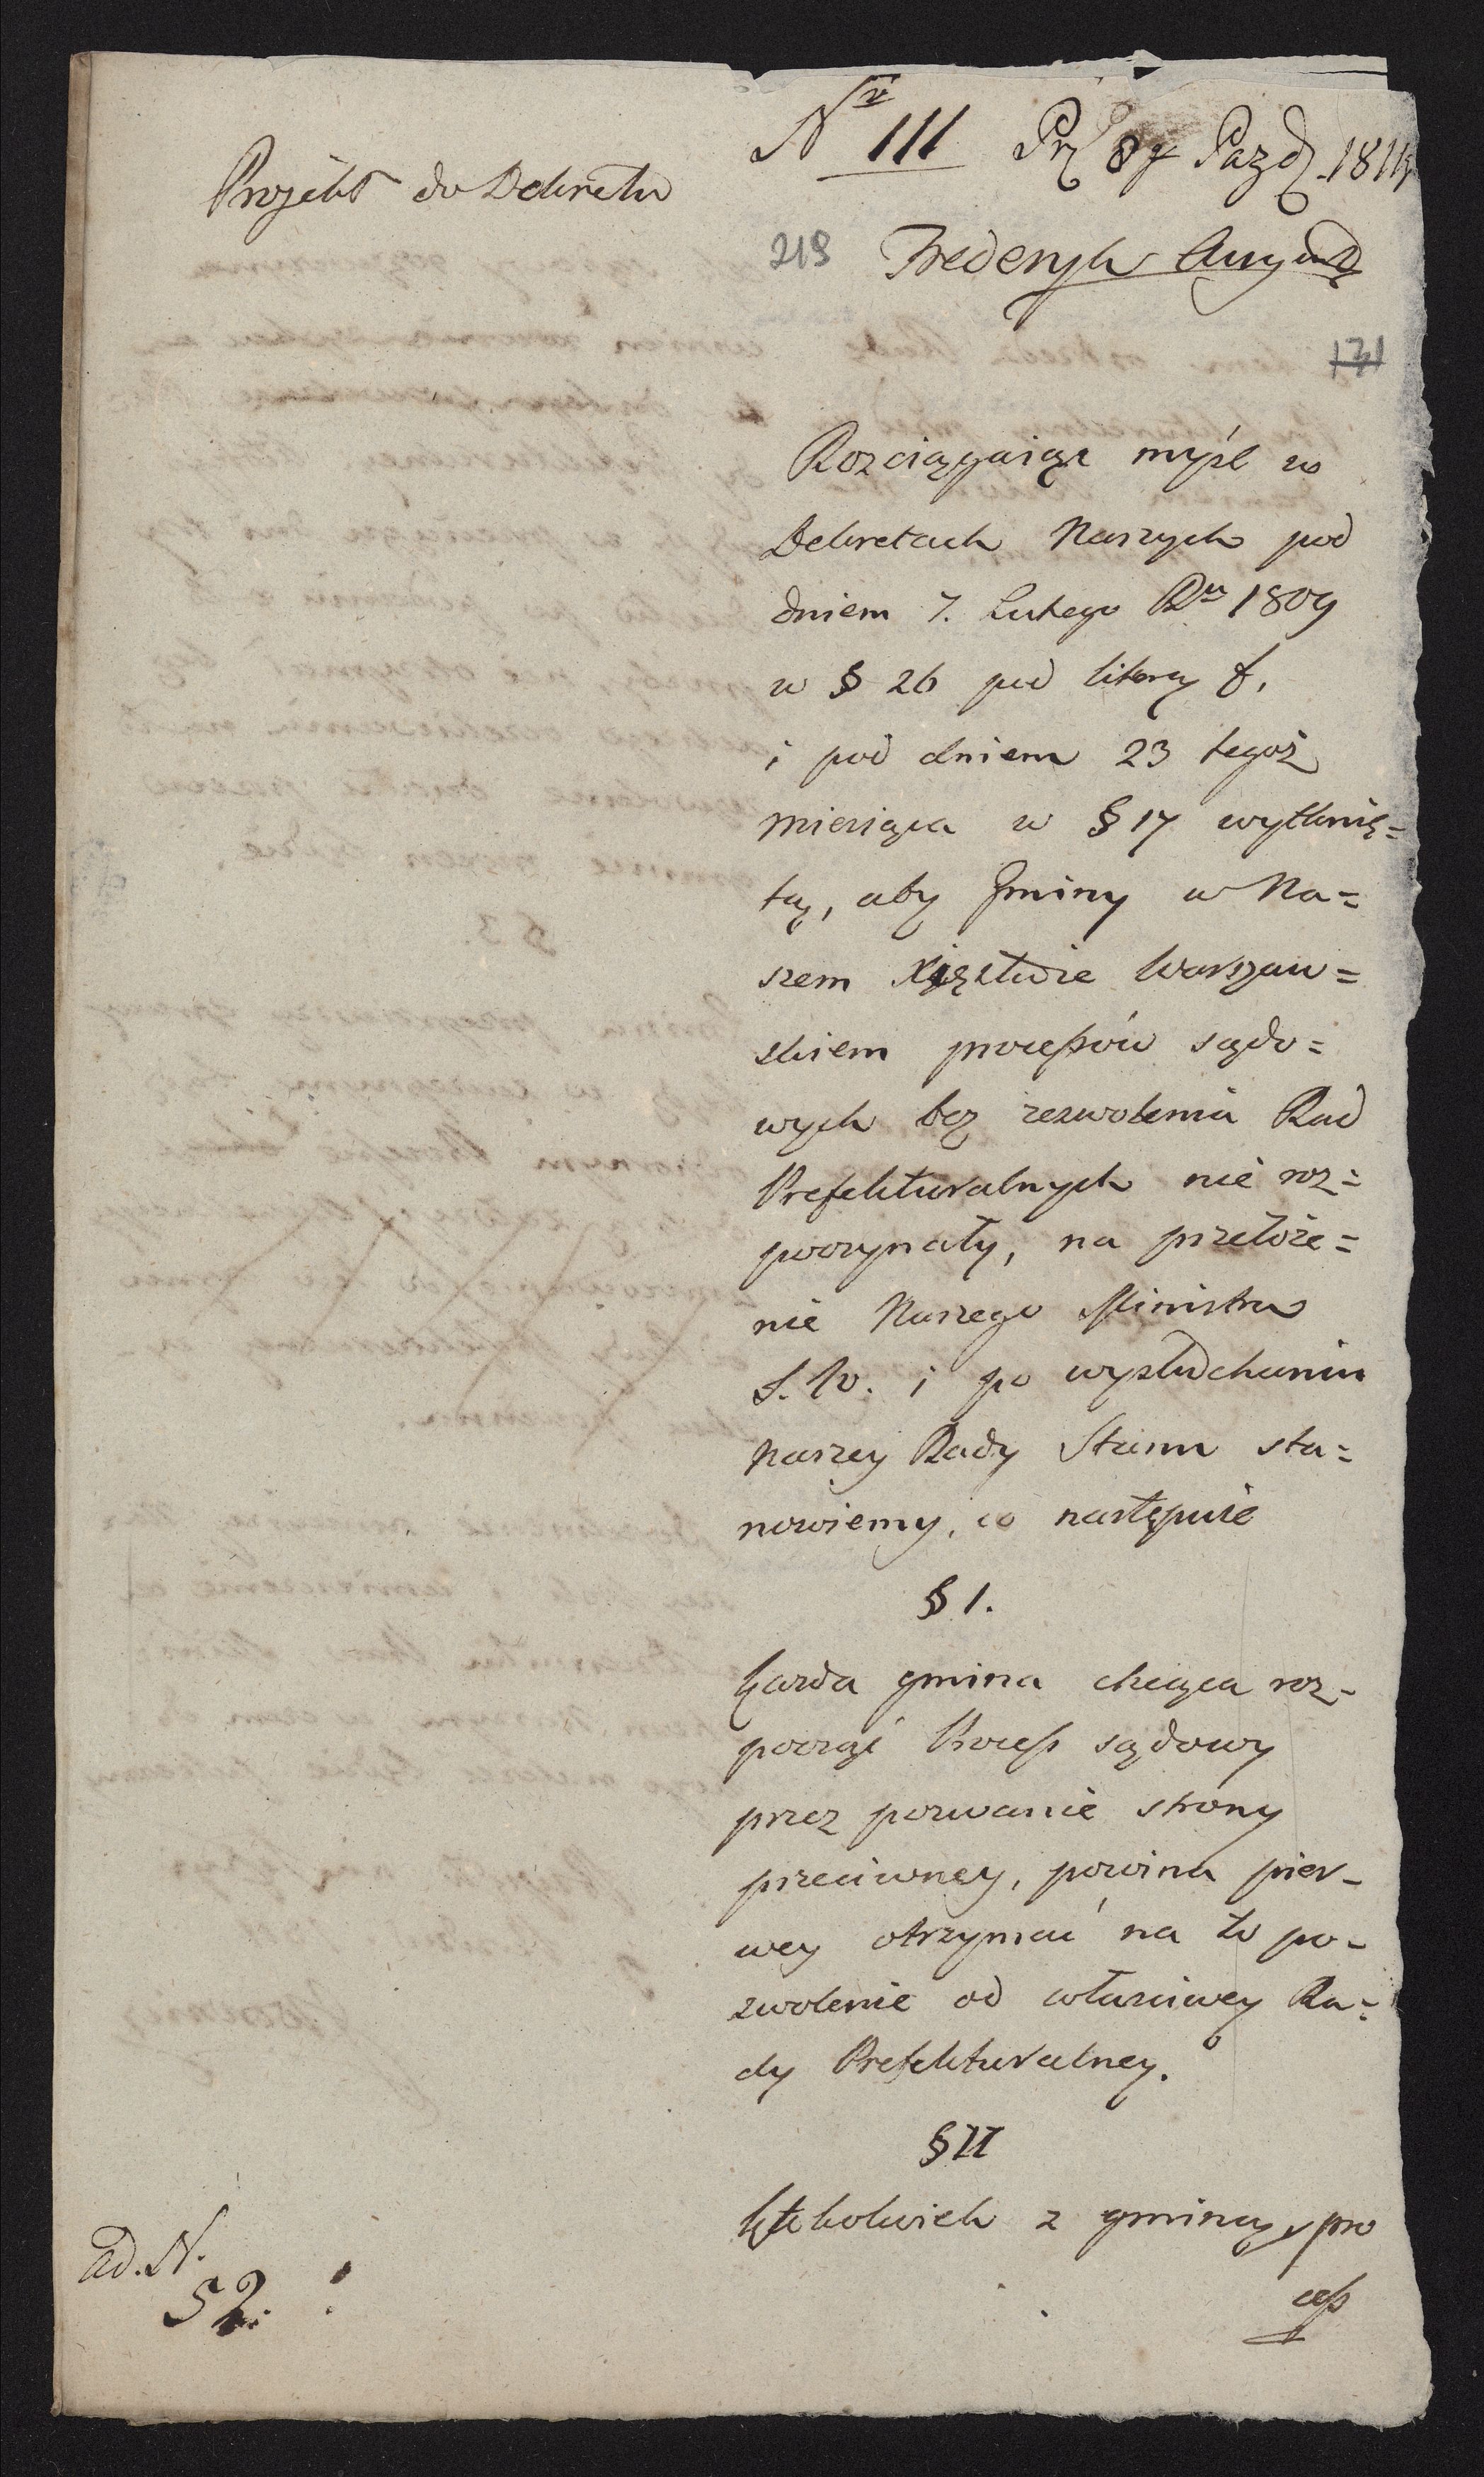 Nr III Prz 8 Pazdz. 1811
Projekt do Dekretu
219 Frederyk August
131
Rozciągaiąc myśl w
Dekretach Naszych pod
dniem 7. Lutego Ru 1809
w § 26 pod literą f,
i pod dniem 23 tegoż
miesiąca w § 17 wytknię=
tą, aby Gminy w Na=
szem Xięztwie Warszaw=
skiem proceſsów sądo=
wych bez zezwolenia Rad
Prefekturalnych nie roz=
poczynały, na przełoże=
nie Naszego Ministra
S. W. i po wysłuchaniu
Naszey Rady Stanu sta=
nowiemy, co następuie
§ 1.
Każda gmina chcąca roz-
począć Proceſs sądowy
przez pozwanie strony
przeciwney, powina pier-
wey otrzymać na to po-
zwolenie od właściwey Ra=
dy Prefekturalney.
§ II
Ktokolwiek z gminą pro
ceſs
ad. N.
52.